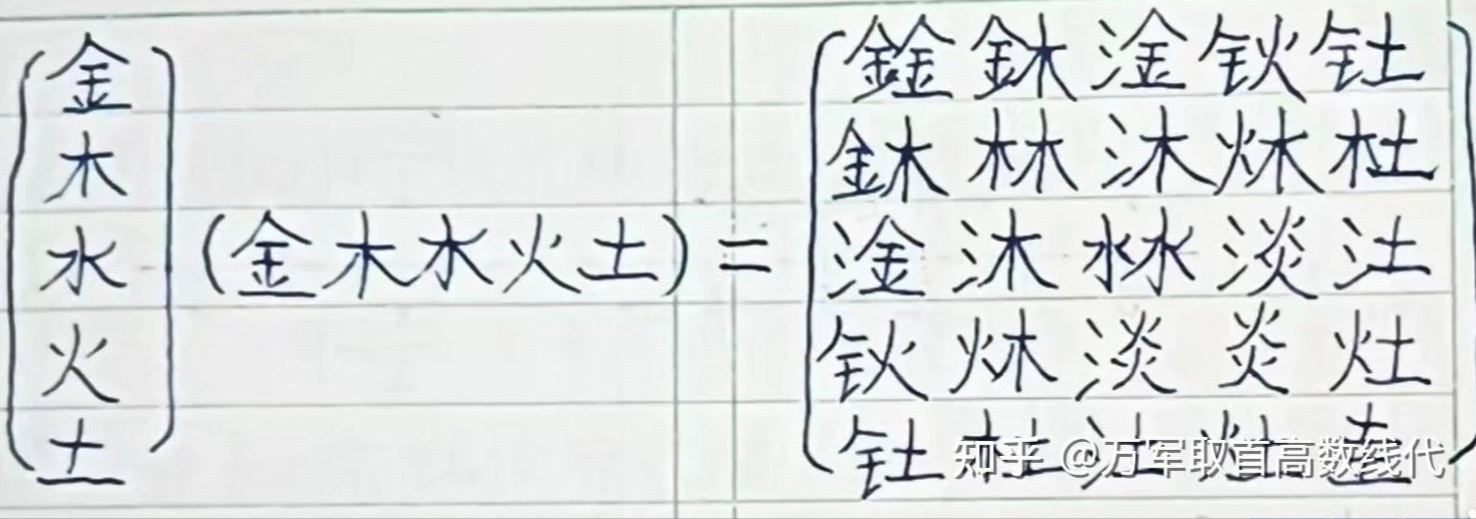 金 鍂 淦 钬 钍
木 林 沐 炑 杜
水 (金 木 水 火 土) = 淦 沐 沝 淡 汢
火 钬 炑 淡 炎 灶
土 钍 杜 汢 灶 圭
知乎 @万军取首高数线代